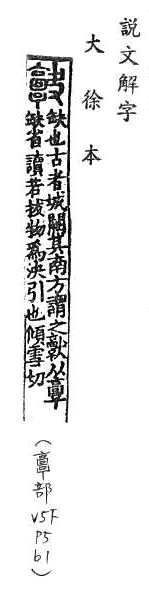 說文解字
大徐本
缺也古者城闕其南方謂之 从𩫏
缺省讀若拔物爲決引也傾雪切
(𩫏部 V5F P5 b1)